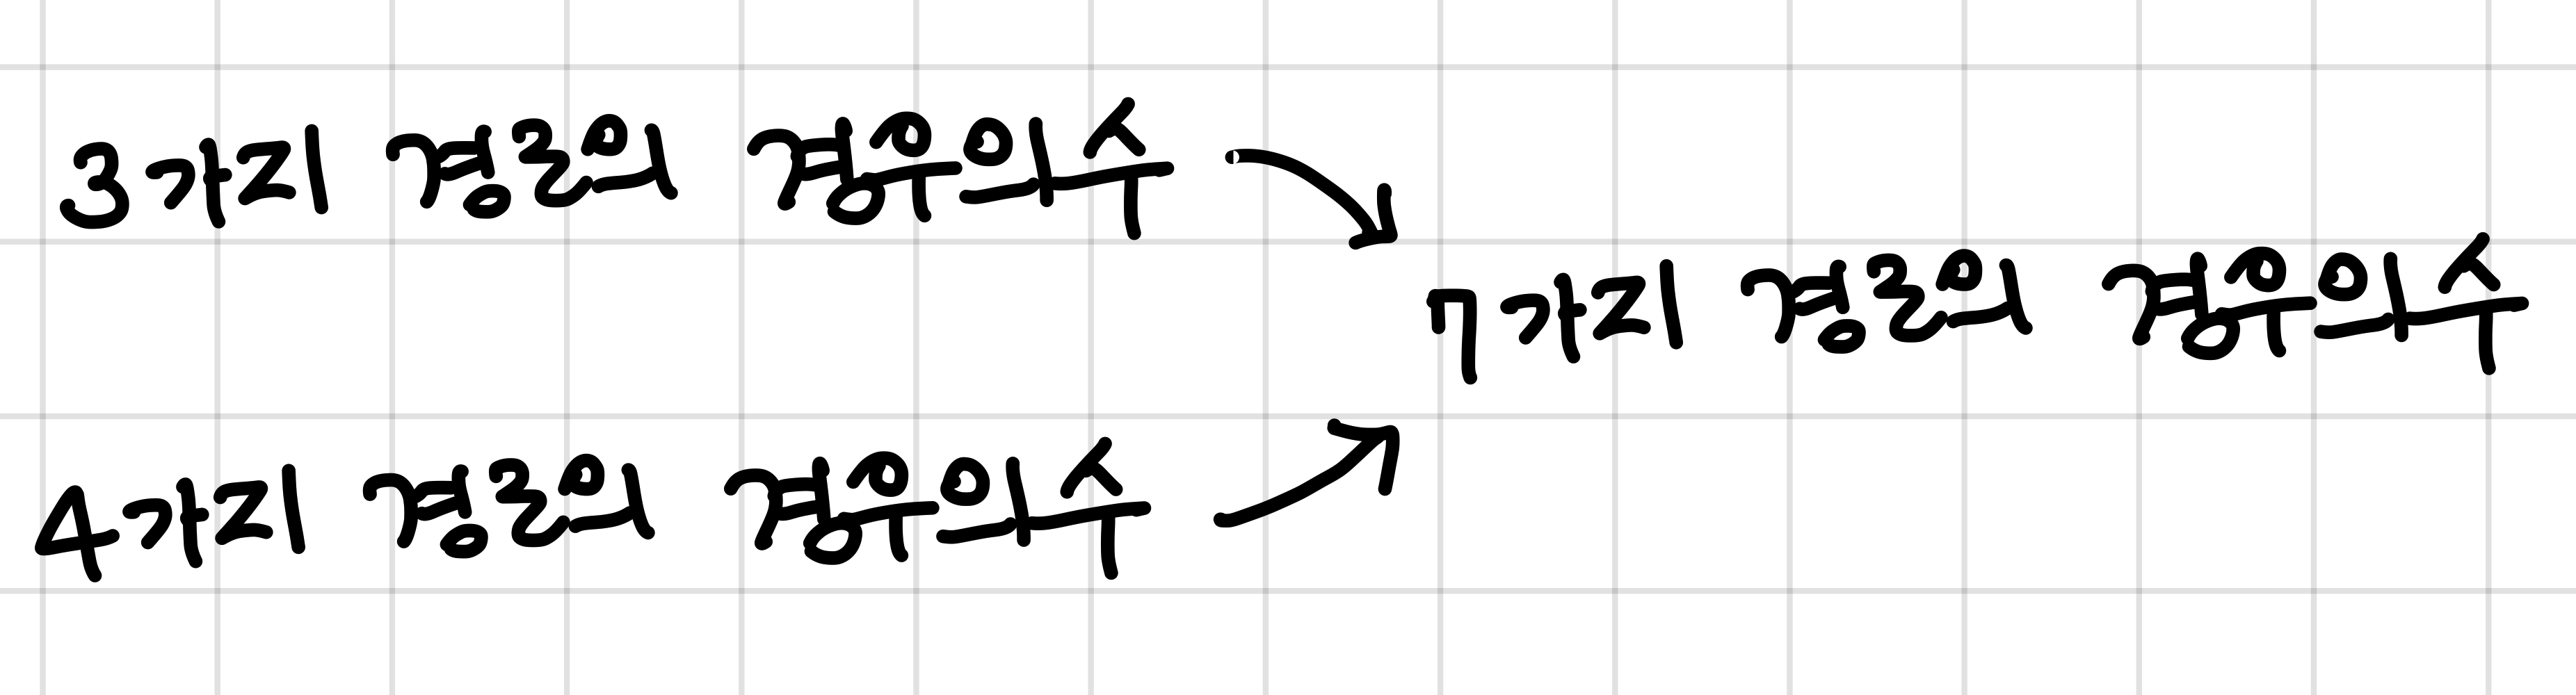 3가지 경로의 경우의수
7가지 경로의 경우의수
4가지 경로의 경우의수